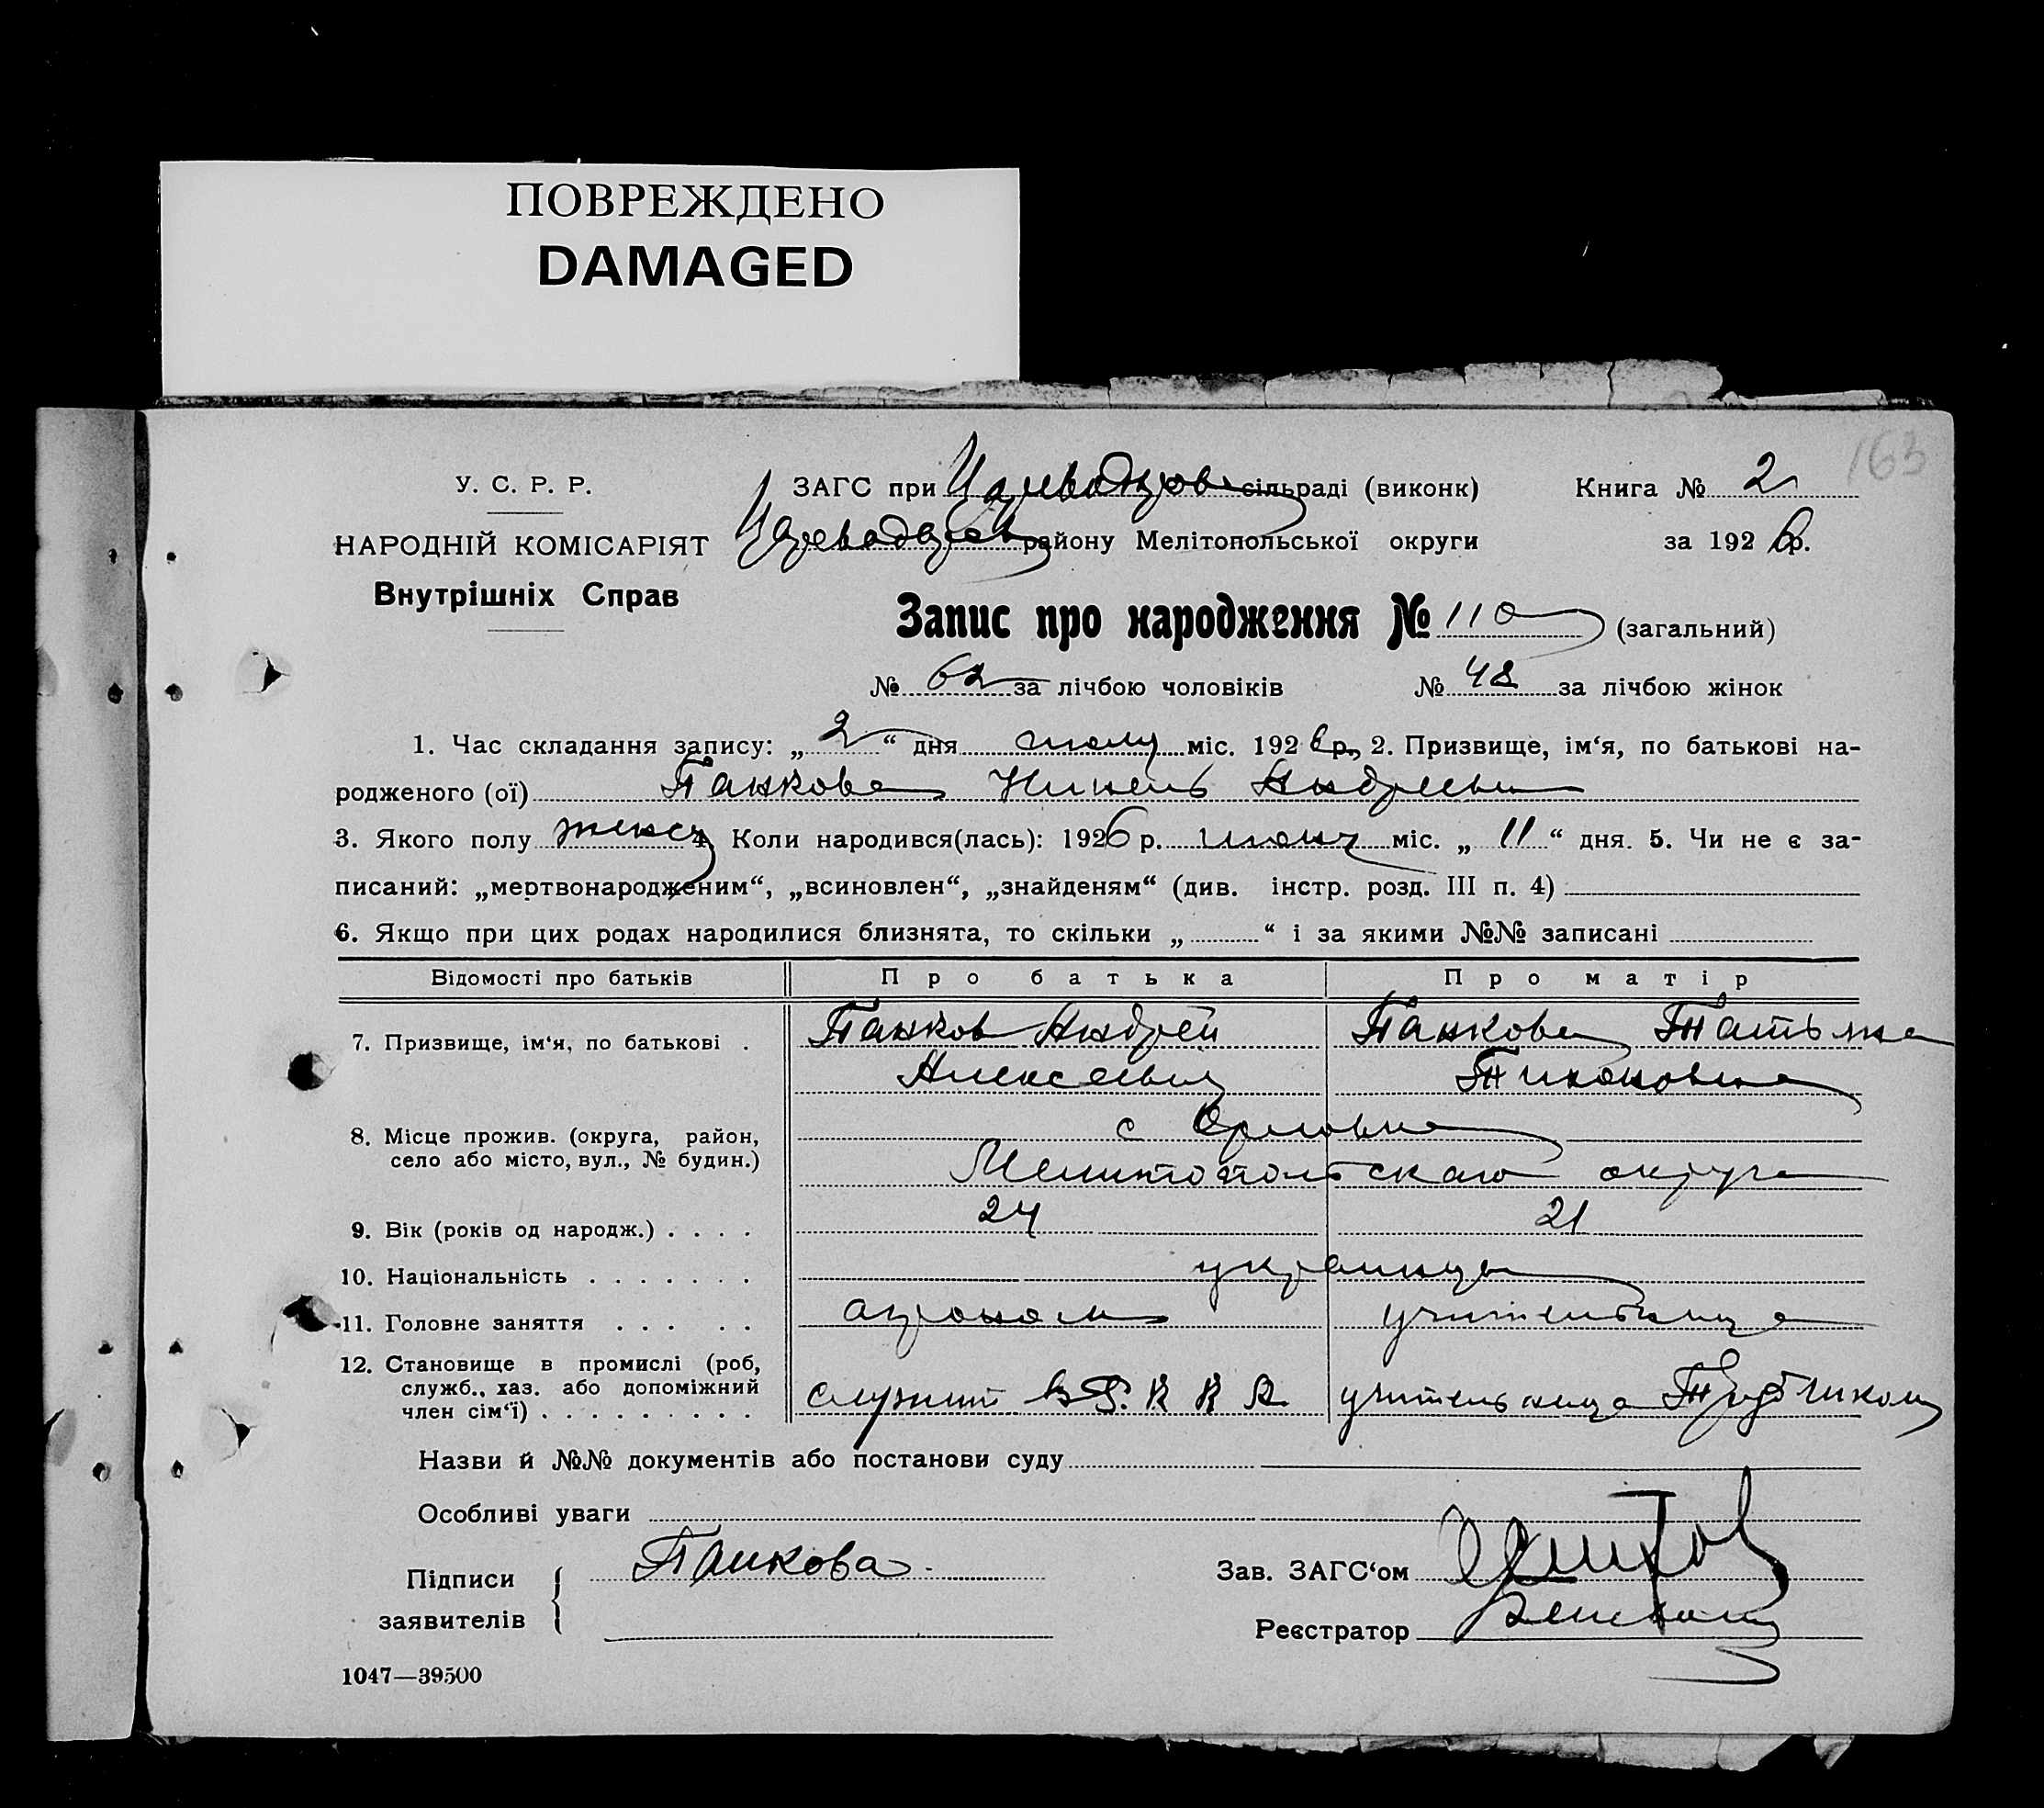 ПОВРЕЖДЕНО
DAMAGED
163
У. С. Р. Р.
НАРОДНІЙ КОМІСАРІЯТ
Внутрішніх Справ
ЗАГС при сільраді (виконк)
Книга № 2
району Мелітопольської округи
за 1926 р.
Запис про народження № 110 (загальний)
№ 62 за лічбою чоловіків № 48 за лічбою жінок
1. Час складання запису: „ 2 “ дня июля міс. 1926 р., 2. Призвище, ім‘я, по батькові на-
родженого (ої) Панкова Нинель Андреевна
3. Якого полу женск 4. Коли народився(лась): 1926 р. июня міс. „ 11 “ дня. 5. Чи не є за-
писаний: „мертвонародженим“, „всиновлен“, „знайденям“ (див. інстр. розд. III п. 4)
6. Якщо при цих родах народилися близнята, то скільки „ “ і за якими №№ записані
Відомості про батьків Про батька Про матір
7. Призвище, ім‘я, по батькові . Панков Андрей Панкова Татьяна
Алексеевич Тихоновна
8. Місце прожив. (округа, район, с Орловка
село або місто, вул., № будин.) Мелитопольского округа
9. Вік (років од народж.) . . . . 24 21
10. Національність . . . . . . . украинцы
11. Головне заняття . . . . . агроном учительница
12. Становище в промислі (роб,
служб., хаз. або допоміжний служит в Р. К К А учительница
член сім‘ї) . . . . . . . . .
Назви й №№ документів або постанови суду
Особливі уваги
Підписи
заявителів
Панкова
Зав. ЗАГС‘ом
Реєстратор
1047—39500